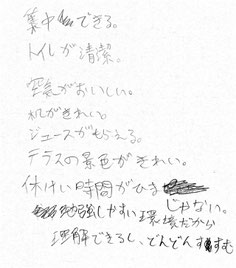 集中できる。
トイレが清潔。
空気がおいしい。
机がきれい。
ジュースが
テラスの景色がきれい。
休けい時間がひま じゃない。
勉強しやすい環境だから
理解できるし、どんどんすすむ